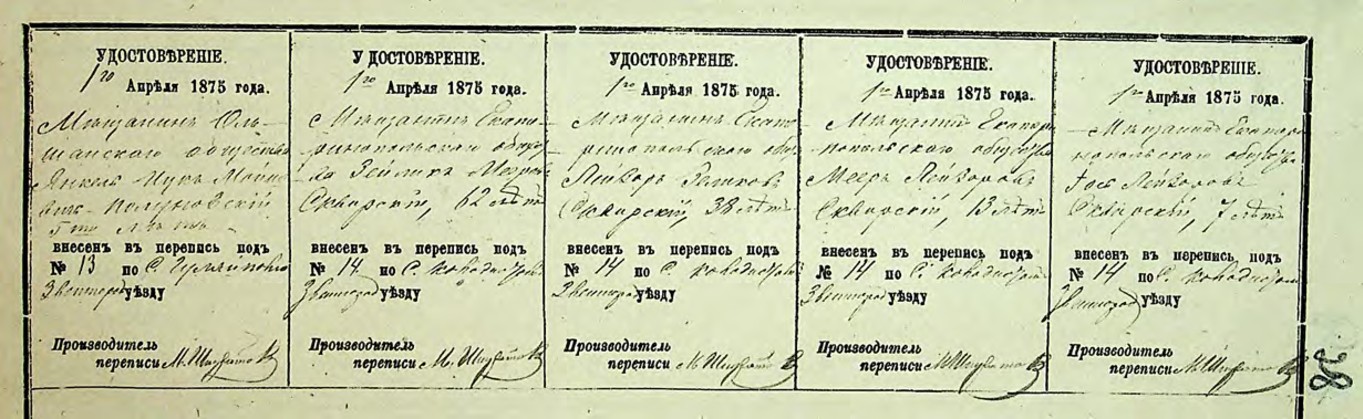 УДОСТОВѢРЕНІЕ.
1го Апрѣля 1875 года.
Мѣщанинъ Оль-
шанскаго общества
Янкель
5 лѣтъ
внесенъ въ перепись подъ
№ 13 по С.
Звенигород уѣзду
Производитель
переписи М.
УДОСТОВѢРЕНІЕ.
1го Апрѣля 1875 года.
Мѣщанинъ Екате-
ринопольскаго обще-
ва Зейликъ Мееров
Сквирскій, 62 лѣтъ
внесенъ въ перепись подъ
№ 14 по С.
Звенигород уѣзду
Производитель
переписи М.
УДОСТОВѢРЕНІЕ.
1го Апрѣля 1875 года.
Мѣщанинъ Екате-
ринопольскаго общ
Лейзоръ Зеликовъ
Сквирскій, 38 лѣтъ
внесенъ въ перепись подъ
№ 14 по С.
Звенигород уѣзду
Производитель
переписи М.
УДОСТОВѢРЕНІЕ.
1го Апрѣля 1875 года.
Мѣщанинъ Екатери
нопольскаго общества
Мееръ Лейзоровъ
Сквирскій, 13 лѣтъ
внесенъ въ перепись подъ
№ 14 по С.
Звенигород уѣзду
Производитель
переписи М.
УДОСТОВѢРЕНІЕ.
1го Апрѣля 1875 года.
Мѣщанинъ Екатери
нопольскаго общества
Іось Лейзоровъ
Сквирскій, 7 лѣтъ
внесенъ въ перепись подъ
№ 14 по С.
Звенигород уѣзду
Производитель
переписи М.